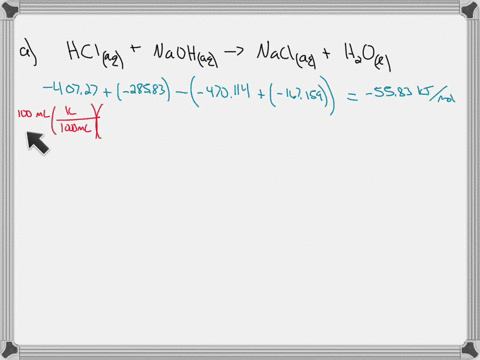 a) HCl(aq) + NaOH(aq) → NaCl(aq) + H₂O(l)
-407.27 + (-285.83) - (-470.114 + (-167.159)) = -55.83 kJ/mol
100 mL (1L/1000mL)(